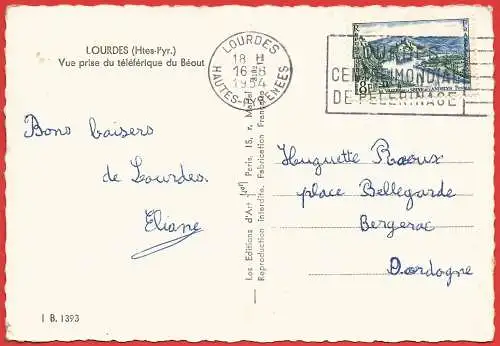 LOURDES (Htes-Pyr.)
Vue prise du téléférique du Béout
LOURDES
18 H
16-8
1954
HAUTES-PYRENEES
LOURDES
CENTRE MONDIAL
DE PELERINAGE
8F
Bons baisers
de Lourdes.
Eliane
Les Editions d'Art Paris, 15, r. Martel
Reproduction Interdite. Fabrication Française
Huguette Raoux
place Bellegarde
Bergerac
Dordogne
I B. 1393